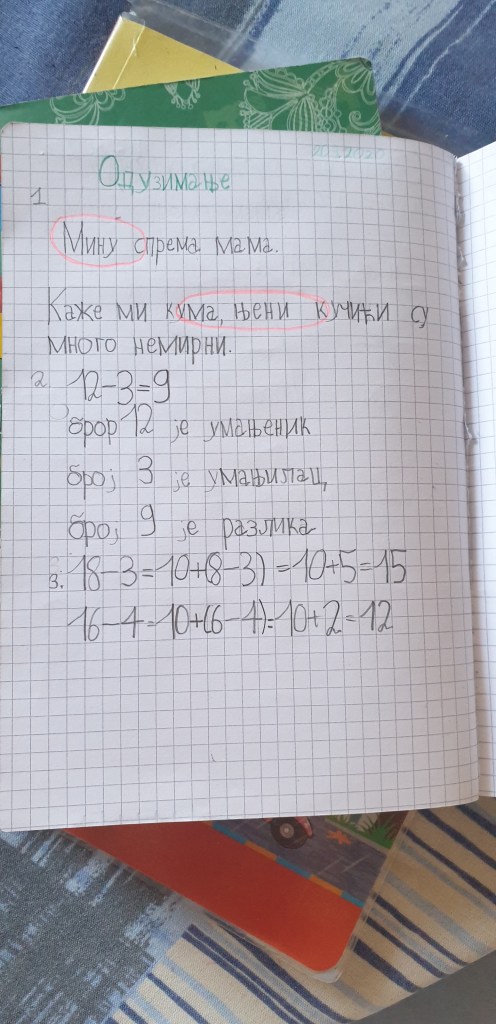 Одузимање
1
Мину спрема мама.
Каже ми кума, њени кучићи су
много немирни.
2 12-3=9
број 12 је умањеник
број 3 је умањилац,
број 9 је разлика
3. 18-3=10+(8-3)=10+5=15
16-4=10+(6-4)=10+2=12